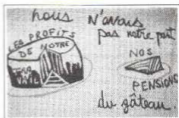 nous N'avons
pas notre part
LES PROFITS
DE NOTRE
NOS
PENSIONS
du gâteau.